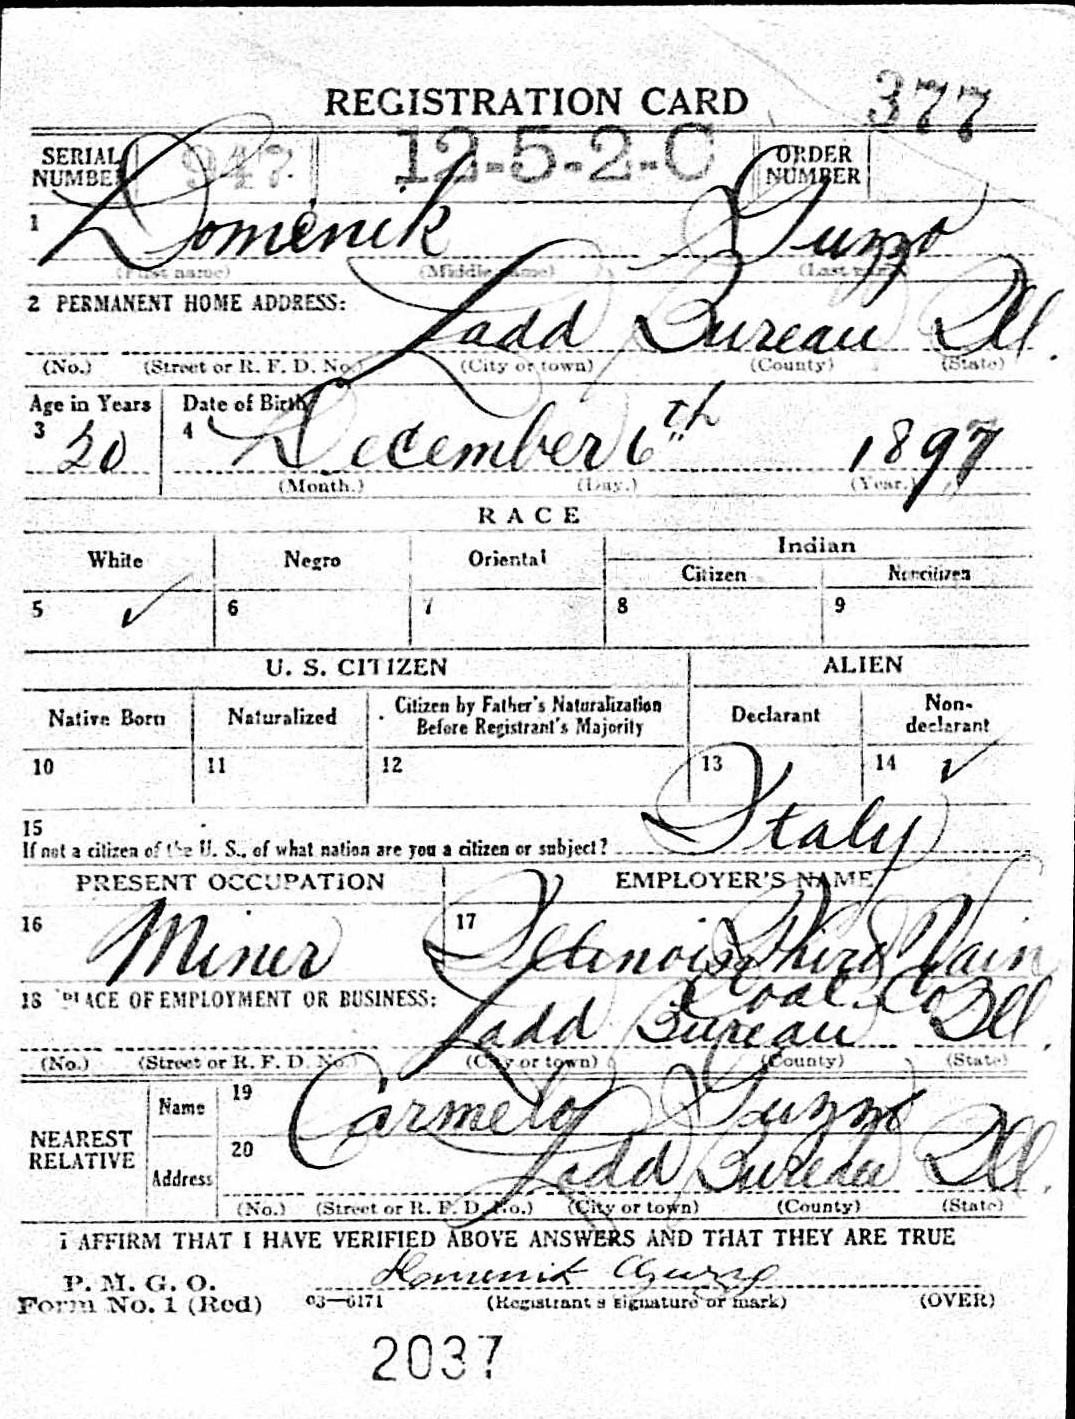 REGISTRATION CARD 377
SERIAL NUMBER 947 12-5-2-C ORDER NUMBER
1 Domenik Guzzo
(First name) (Middle name) (Last name)
2 PERMANENT HOME ADDRESS:
Ladd Bureau Ill.
(No.) (Street or R. F. D. No.) (City or town) (County) (State)
Age in Years Date of Birth
3 20 4 December 6th 1897
(Month.) (Day.) (Year.)
RACE
White Negro Oriental Indian
Citizen Noncitizen
5 ✓ 6 7 8 9
U. S. CITIZEN ALIEN
Native Born Naturalized Citizen by Father's Naturalization Before Registrant's Majority Declarant Non-declarant
10 11 12 13 14 ✓
15
If not a citizen of the U. S., of what nation are you a citizen or subject? Italy
PRESENT OCCUPATION EMPLOYER'S NAME
16 Miner 17 Illinois Third Vain
Coal Co
18 PLACE OF EMPLOYMENT OR BUSINESS:
Ladd Bureau Ill.
(No.) (Street or R. F. D. No.) (City or town) (County) (State)
NEAREST RELATIVE
Name 19 Carmelo Guzzo
Address 20 Ladd Bureau Ill.
(No.) (Street or R. F. D. No.) (City or town) (County) (State)
I AFFIRM THAT I HAVE VERIFIED ABOVE ANSWERS AND THAT THEY ARE TRUE
P. M. G. O.
Form No. 1 (Red) 03—6171 Domenik Guzzo
(Registrant's signature or mark) (OVER)
2037